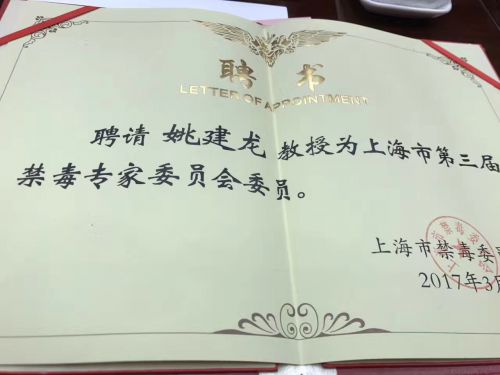 聘书
LETTER OF APPOINTMENT
聘请 姚建龙 教授为上海市第三届
禁毒专家委员会委员。
上海市禁毒委
2017年3月